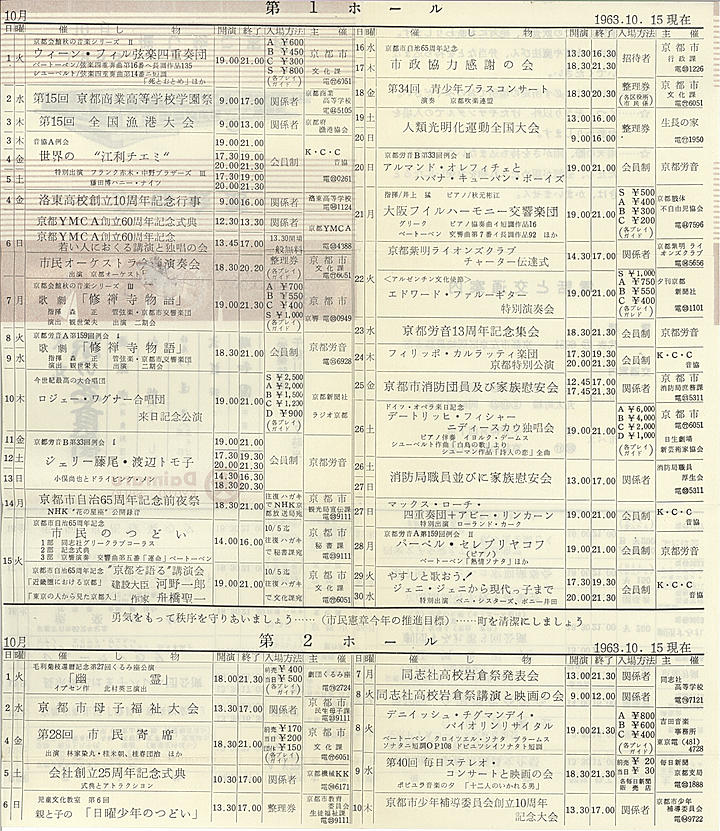 10月 第1ホール 1963.10.15現在
日 曜 催し物 開演 終了 入場方法 主催
1 火
京都会館秋の音楽シリーズ Ⅱ
ウィーン・フィル弦楽四重奏団
ベートーベン/弦楽四重奏曲第16番ヘ長調作品135
シューベルト/弦楽四重奏曲第14番ニ短調
「死とおとめ」ほか
19.00 21.00
A ¥600
B ¥450
C ¥300
S ¥800
(各プレイガイド)
京都市
文化課
電⑯6051
2 水 第15回 京都商業高等学校学園祭 9.00 17.00 関係者 京都商業高等学校
3 木 第15回 全国漁港大会 9.00 13.00 関係者 京都府漁港協会
3 木
4 金
5 土
音協A例会
世界の “江利チエミ”
特別出演 フランク赤木・中野ブラザーズ
鎌田博ハニー・ナイツ
19.00 21.00
17.30 19.00
20.00 21.30
17.30 19.00
20.00 21.30
会員制
K・C・C
音協
電⑯0261
4 金 洛東高校創立10周年記念行事 9.00 16.00 関係者 洛東高等学校
6 日
京都YMCA創立60周年記念式典 12.30 13.30 関係者 京都YMCA
京都YMCA創立60周年記念
若い人におくる講演と独唱の会
13.45 17.00 13.30開場 一般無料
電㉓4388
市民オーケストラ 演奏会
出演 京都オーケスト
18.30 20.20 整理券 (各プレイガイド)
京都市
文化課
7 月
京都会館秋の音楽シリーズ Ⅲ
歌劇「修禅寺物語」
指揮 森 正 管弦楽・京都市交響楽団
演出 観世栄夫 出演 二期会
19.00 21.30
A ¥700
B ¥550
C ¥400
S ¥1,000
(各プレイガイド)
京都市
京響 電⑯0949
8 火
9 水
京都労音A第159回例会 Ⅰ
歌劇「修禅寺物語」
指揮 森 正 管弦楽・京都市交響楽団
演出 観世栄夫 出演 二期会
18.30 21.00 会員制 京都労音
電⑯6928
10 木
今世紀最高の大合唱団
ロジェー・ワグナー合唱団
来日記念公演
19.00 21.00
S ¥2,500
A ¥2,000
B ¥1,500
C ¥1,200
D ¥900
(各プレイガイド)
京都新聞社
ラジオ京都
11 金
12 土
13 日
京都労音B第33回例会 Ⅰ
ジェリー藤尾・渡辺トモ子
小俣尚也とドライビング・メン
19.00 21.00
17.30 19.00
20.00 21.30
14.30 16.30
18.30 20.30
会員制 京都労音
14 月
京都市自治65周年記念前夜祭
NHK“花の星座”公開録音
18.30 21.00
往復ハガキでNHK京都放送局宛
京都市
観光局宣伝課
電㉒9111
15 火
京都市自治65周年記念
市民のつどい
1部 同志社グリークラブコーラス
2部 記念式典
3部 京響演奏 交響曲第五番「運命」ベートーベン
14.00 16.00
10/5迄 往復ハガキで秘書課宛
京都市
秘書課
電㉒9111
京都市自治65周年記念 “京都を語る”講演会
「近畿圏における京都」 建設大臣 河野一郎
「東京の人から見た京都人」 作家 舟橋聖一
19.00 21.00
10/5迄 往復ハガキで文化課宛
京都市
文化課
電⑯6051
16 水
17 木
京都市自治65周年記念
市政協力感謝の会
13.30 16.30
18.30 21.30
招待者
京都市
行政課
電㉓1226
18 金
第34回 青少年ブラスコンサート
演奏 京都吹奏連盟
18.30 21.00
整理券
(各区役所市民係)
京都市
文化課
電⑯6051
19 土
20 日
人類光明化運動全国大会
13.00 16.00
9.00 16.00
整理券
生長の家
電⑰1950
20 日
京都労音B第33回例会 Ⅱ
アルマンド・オレフィチェと
ハバナ・キューバン・ボーイズ
19.00 21.00 会員制 京都労音
21 月
指揮/井上 猛 ピアノ/秋元彬江
大阪フイルハーモニー交響楽団
グリーク ピアノ協奏曲イ短調作品16
ベートーベン 交響曲第7番イ長調作品92 ほか
19.00 21.00
S ¥500
A ¥400
B ¥300
C ¥200
(各プレイガイド)
京都肢体不自由児協会
電⑯7596
22 火
京都紫明ライオンズクラブ
チャーター伝達式
14.30 17.00 関係者
京都紫明ライオンズクラブ
<アルゼンチン文化使節>
エドワード・ファルーギター
特別演奏会
19.00 21.00
S ¥1,000
A ¥750
B ¥550
C ¥400
(各プレイガイド)
夕刊京都新聞社
23 水 京都労音13周年記念集会 18.30 21.30 会員制 京都労音
24 木
フィリッポ・カルラッティ楽団
京都特別公演
17.30 19.30
20.00 21.30
会員制
K・C・C
音協
25 金
京都市消防団員及び家族慰安会
12.45 17.00
17.45 21.30
関係者
京都市
消防局庶務課
電㉓5311
26 土
ドイツ・オペラ来日記念
デートリッヒ・フィシャー
ニディースカウ独唱会
ピアノ伴奏 イョルク・デームス
シューベルト作曲「白鳥の歌」より
シューマン作品「詩人の恋」全曲
19.00 21.00
A ¥6,000
B ¥4,000
C ¥2,000
D ¥1,000
(各プレイガイド)
京都市
日生劇場
新芸術家協会
26 土
27 日
消防局職員並びに家族慰安会
13.30 17.00
関係者
消防局職員厚生会
電㉓5311
27 日
マックス・ローチ・
四重奏団+アビー・リンカーン
特別出演 ローランド・カーク
19.00 21.00 会員制
K・C・C
音協
28 月
京都労音A第159回例会 Ⅱ
パーベル・セレブリヤコフ
(ピアノ)
ベートーベン「熱情ソナタ」ほか
19.00 21.00 会員制 京都労音
29 火
30 水
やすしと歌おう!
ジェニ・ジェニから現代っ子まで
特別出演 ベニ・シスターズ、ボニー井田
17.30 19.30
20.00 21.30
会員制
K・C・C
音協
勇気をもって秩序を守りあいましょう……(市民憲章今年の推進目標)……町を清潔にしましょう
10月 第2ホール 1963.10.15現在
日 曜 催し物 開演 終了 入場方法 主催
1 火
毛利菊枝還暦記念第27回くるみ座公演
「幽霊」
イプセン作 北村英三演出
18.00 21.30
前売 ¥400
当日 ¥500
(各プレイガイド)
劇団くるみ座
2 水 京都市母子福祉大会 13.00 17.00 関係者
京都市
民生局母子課
電㉒9111
4 金
第28回 市民寄席
出演 林家染丸・桂米朝、桂春団治 ほか
18.30 21.00
前売 ¥170
当日 ¥200
団体 ¥150
(各プレイガイド)
京都市
文化課
電⑯6051
5 土
会社創立25周年記念式典
式典とアトラクション
10.30 17.00 関係者
京都機械KK
6 日
児童文化教室 第6回
親と子の「日曜少年のつどい」
13.30 17.00 整理券
京都市教育委員会
生徒福祉課
電㉒9111
7 月 同志社高校岩倉祭発表会 13.00 21.30 関係者
8 火 同志社高校岩倉祭講演と映画の会 9.00 12.00 関係者
同志社高等学校
8 火
デニイッシュ・チグマンディ・
バイオリンリサイタル
ベートーベン クロイツエル・ソナタ ブラームス
ソナタニ短調OP108 ドビュツシイソナタト短調
19.00 21.00
A ¥800
B ¥600
C ¥400
(各プレイガイド)
吉田音楽事務所
東京電(481)4728
9 水
第40回 毎日ステレオ・
コンサートと映画の会
ポピュラ音楽の夕 「十二人のいかれる男」
18.30 21.30
前売 ¥20
当日 ¥30
各毎日新聞販売店
毎日新聞
京都支局
10 木
京都市少年補導委員会創立10周年
記念大会
13.30 17.00 関係者
京都市少年補導委員会